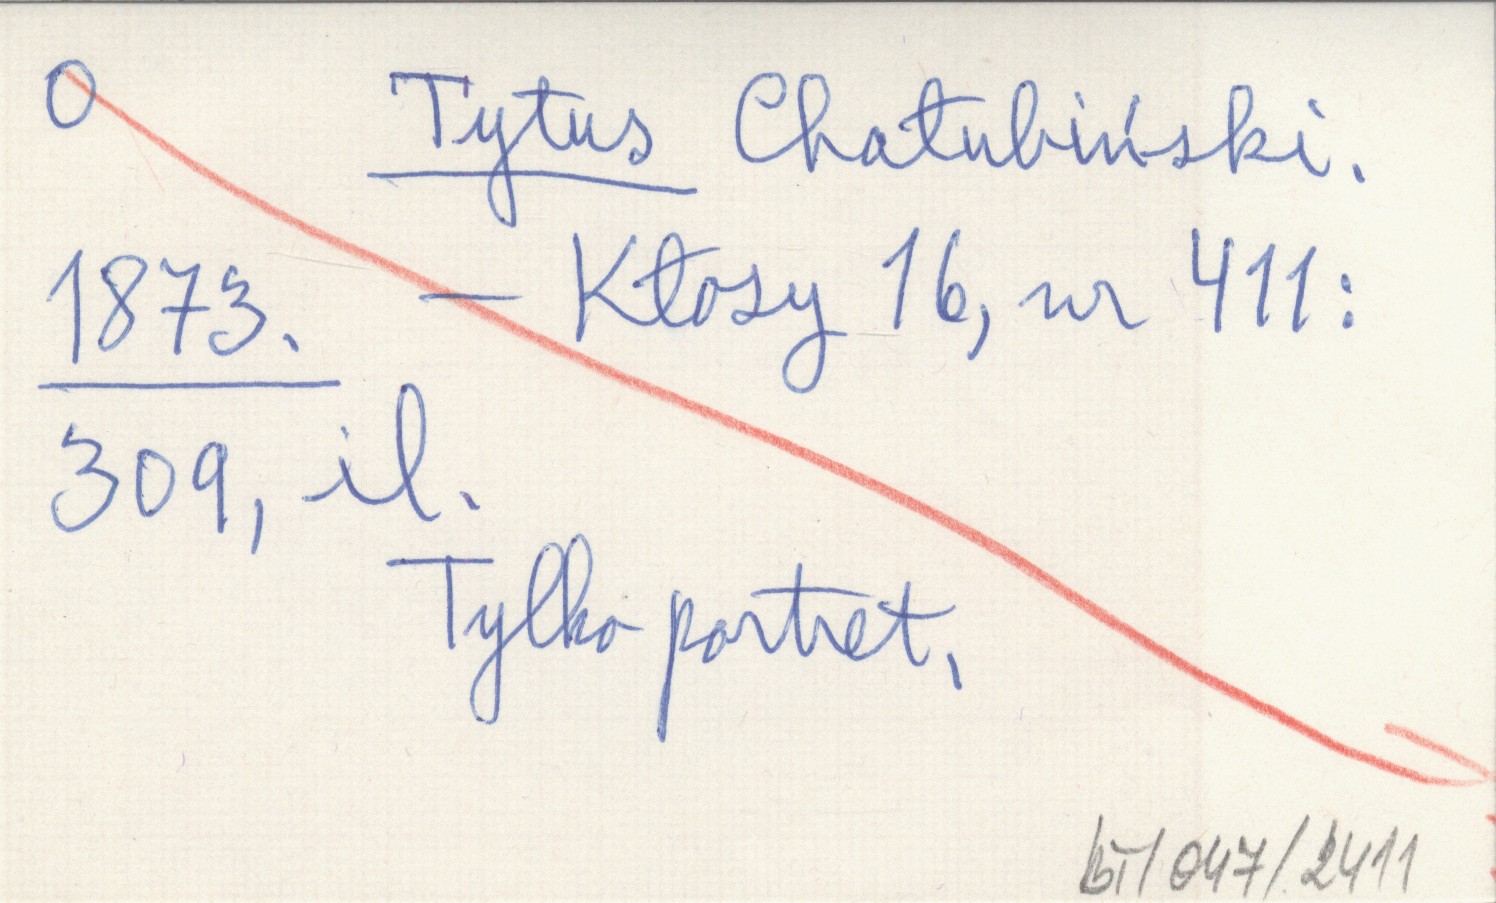 O Tytus Chałubiński.
1873. — Kłosy 16, nr 411:
309, il.
Tylko portret.
/047/2411